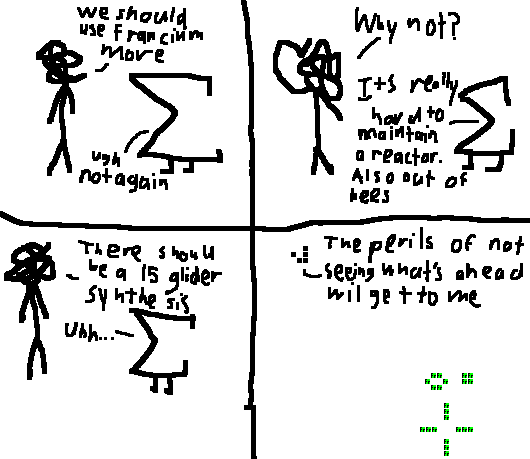 we should
use francium
more
ugh
not again
Why not?
It's really
hard to
maintain
a reactor.
Also out of
bees
There should
be a 15 glider
synthesis
Uhh...
The perils of not
seeing what's ahead
will get to me